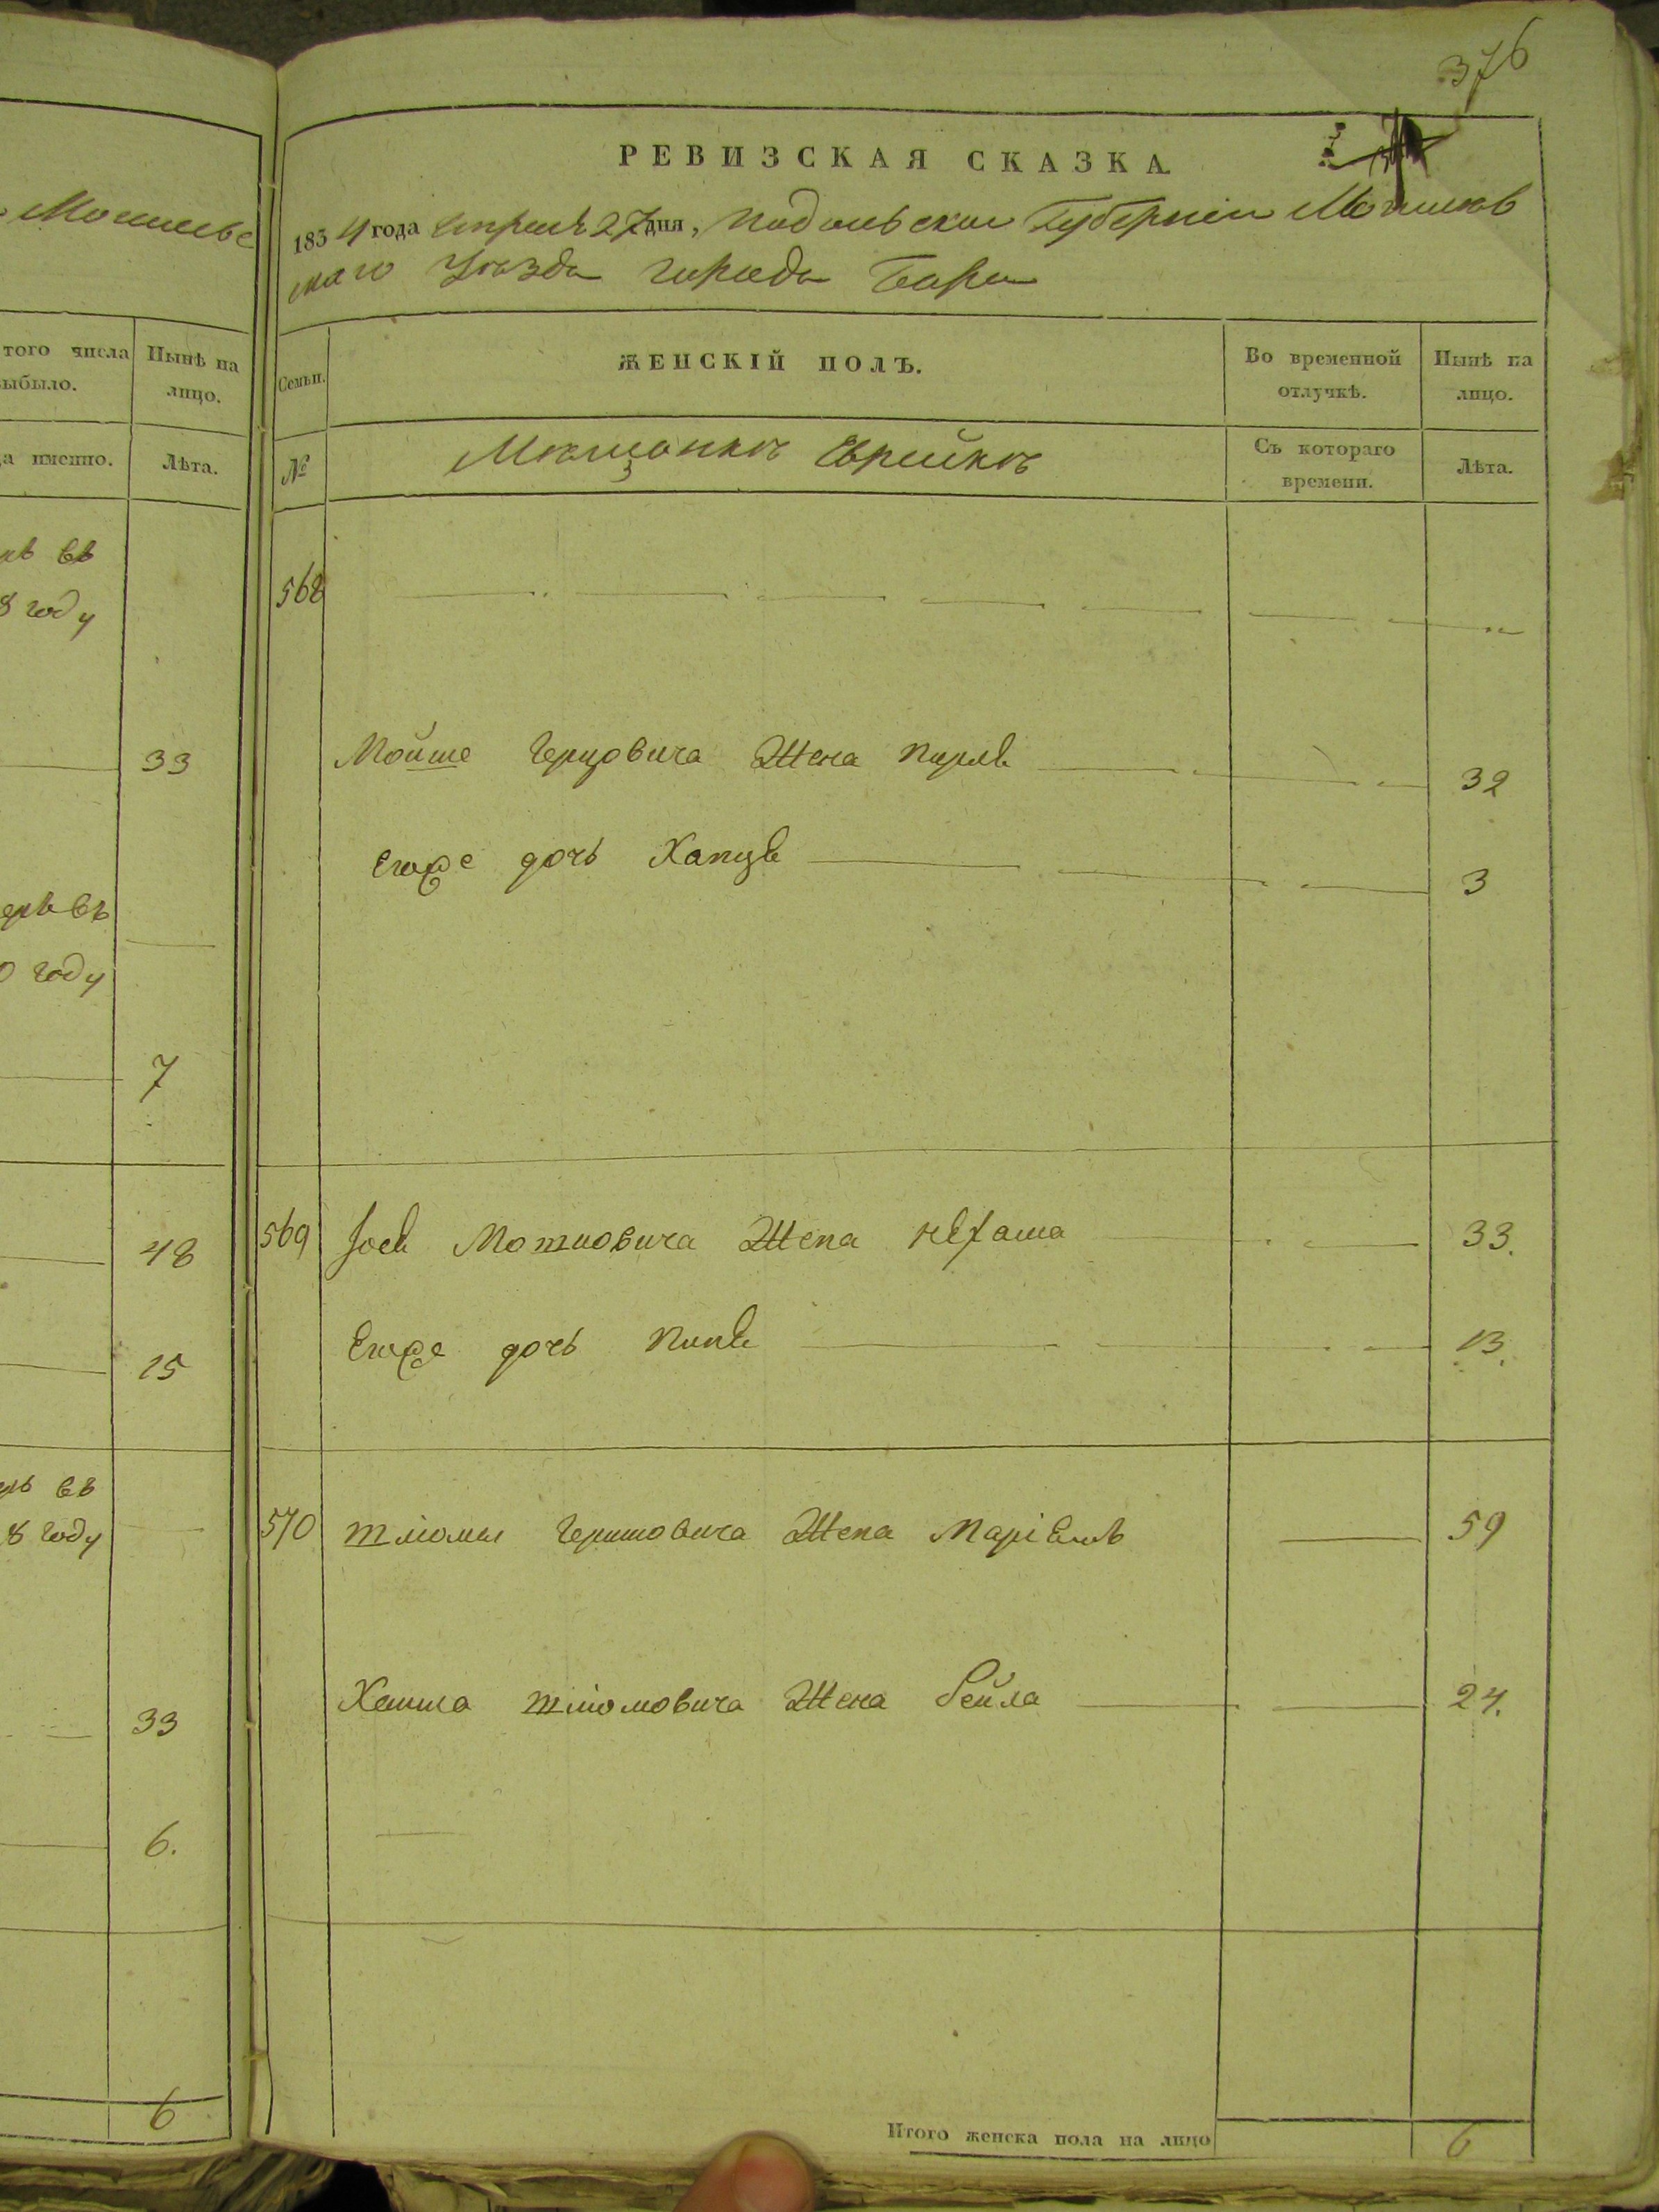 Могилевс
того числа
выбыло.
Нынѣ на
лицо.
да именно.
Лѣта.
въ
8 году
33
въ
0 году
7
48
15
въ
8 году
33
6.
6
376
РЕВИЗСКАЯ СКАЗКА.
1834 года Апреля 27 дня, Подольской Губернии Могилев
скаго Уезда города Бара
Семьи.
ЖЕНСКІЙ ПОЛЪ.
Во временной
отлучкѣ.
Нынѣ на
лицо.
№
Мещанкъ Еврейкъ
Съ котораго
времени.
Лѣта.
568
Мойше Герцовича Жена Перля 32
Егоже дочь Ханця 3
569 Іось Мотіовича Жена 33.
Егоже дочь 13.
570 Шліомы Гершовича Жена Маріемъ 59
Шліомовича Жена Бейла 24.
Итого женска пола на лицо 6